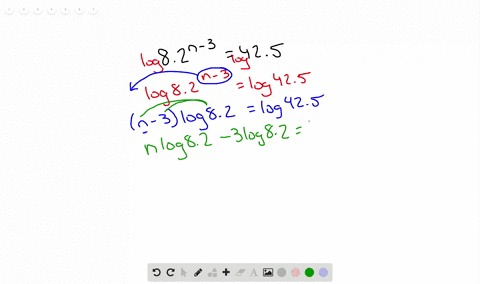 log 8.2^{n-3} = log 42.5
log 8.2^{n-3} = log 42.5
(n-3) log 8.2 = log 42.5
n log 8.2 - 3 log 8.2 =